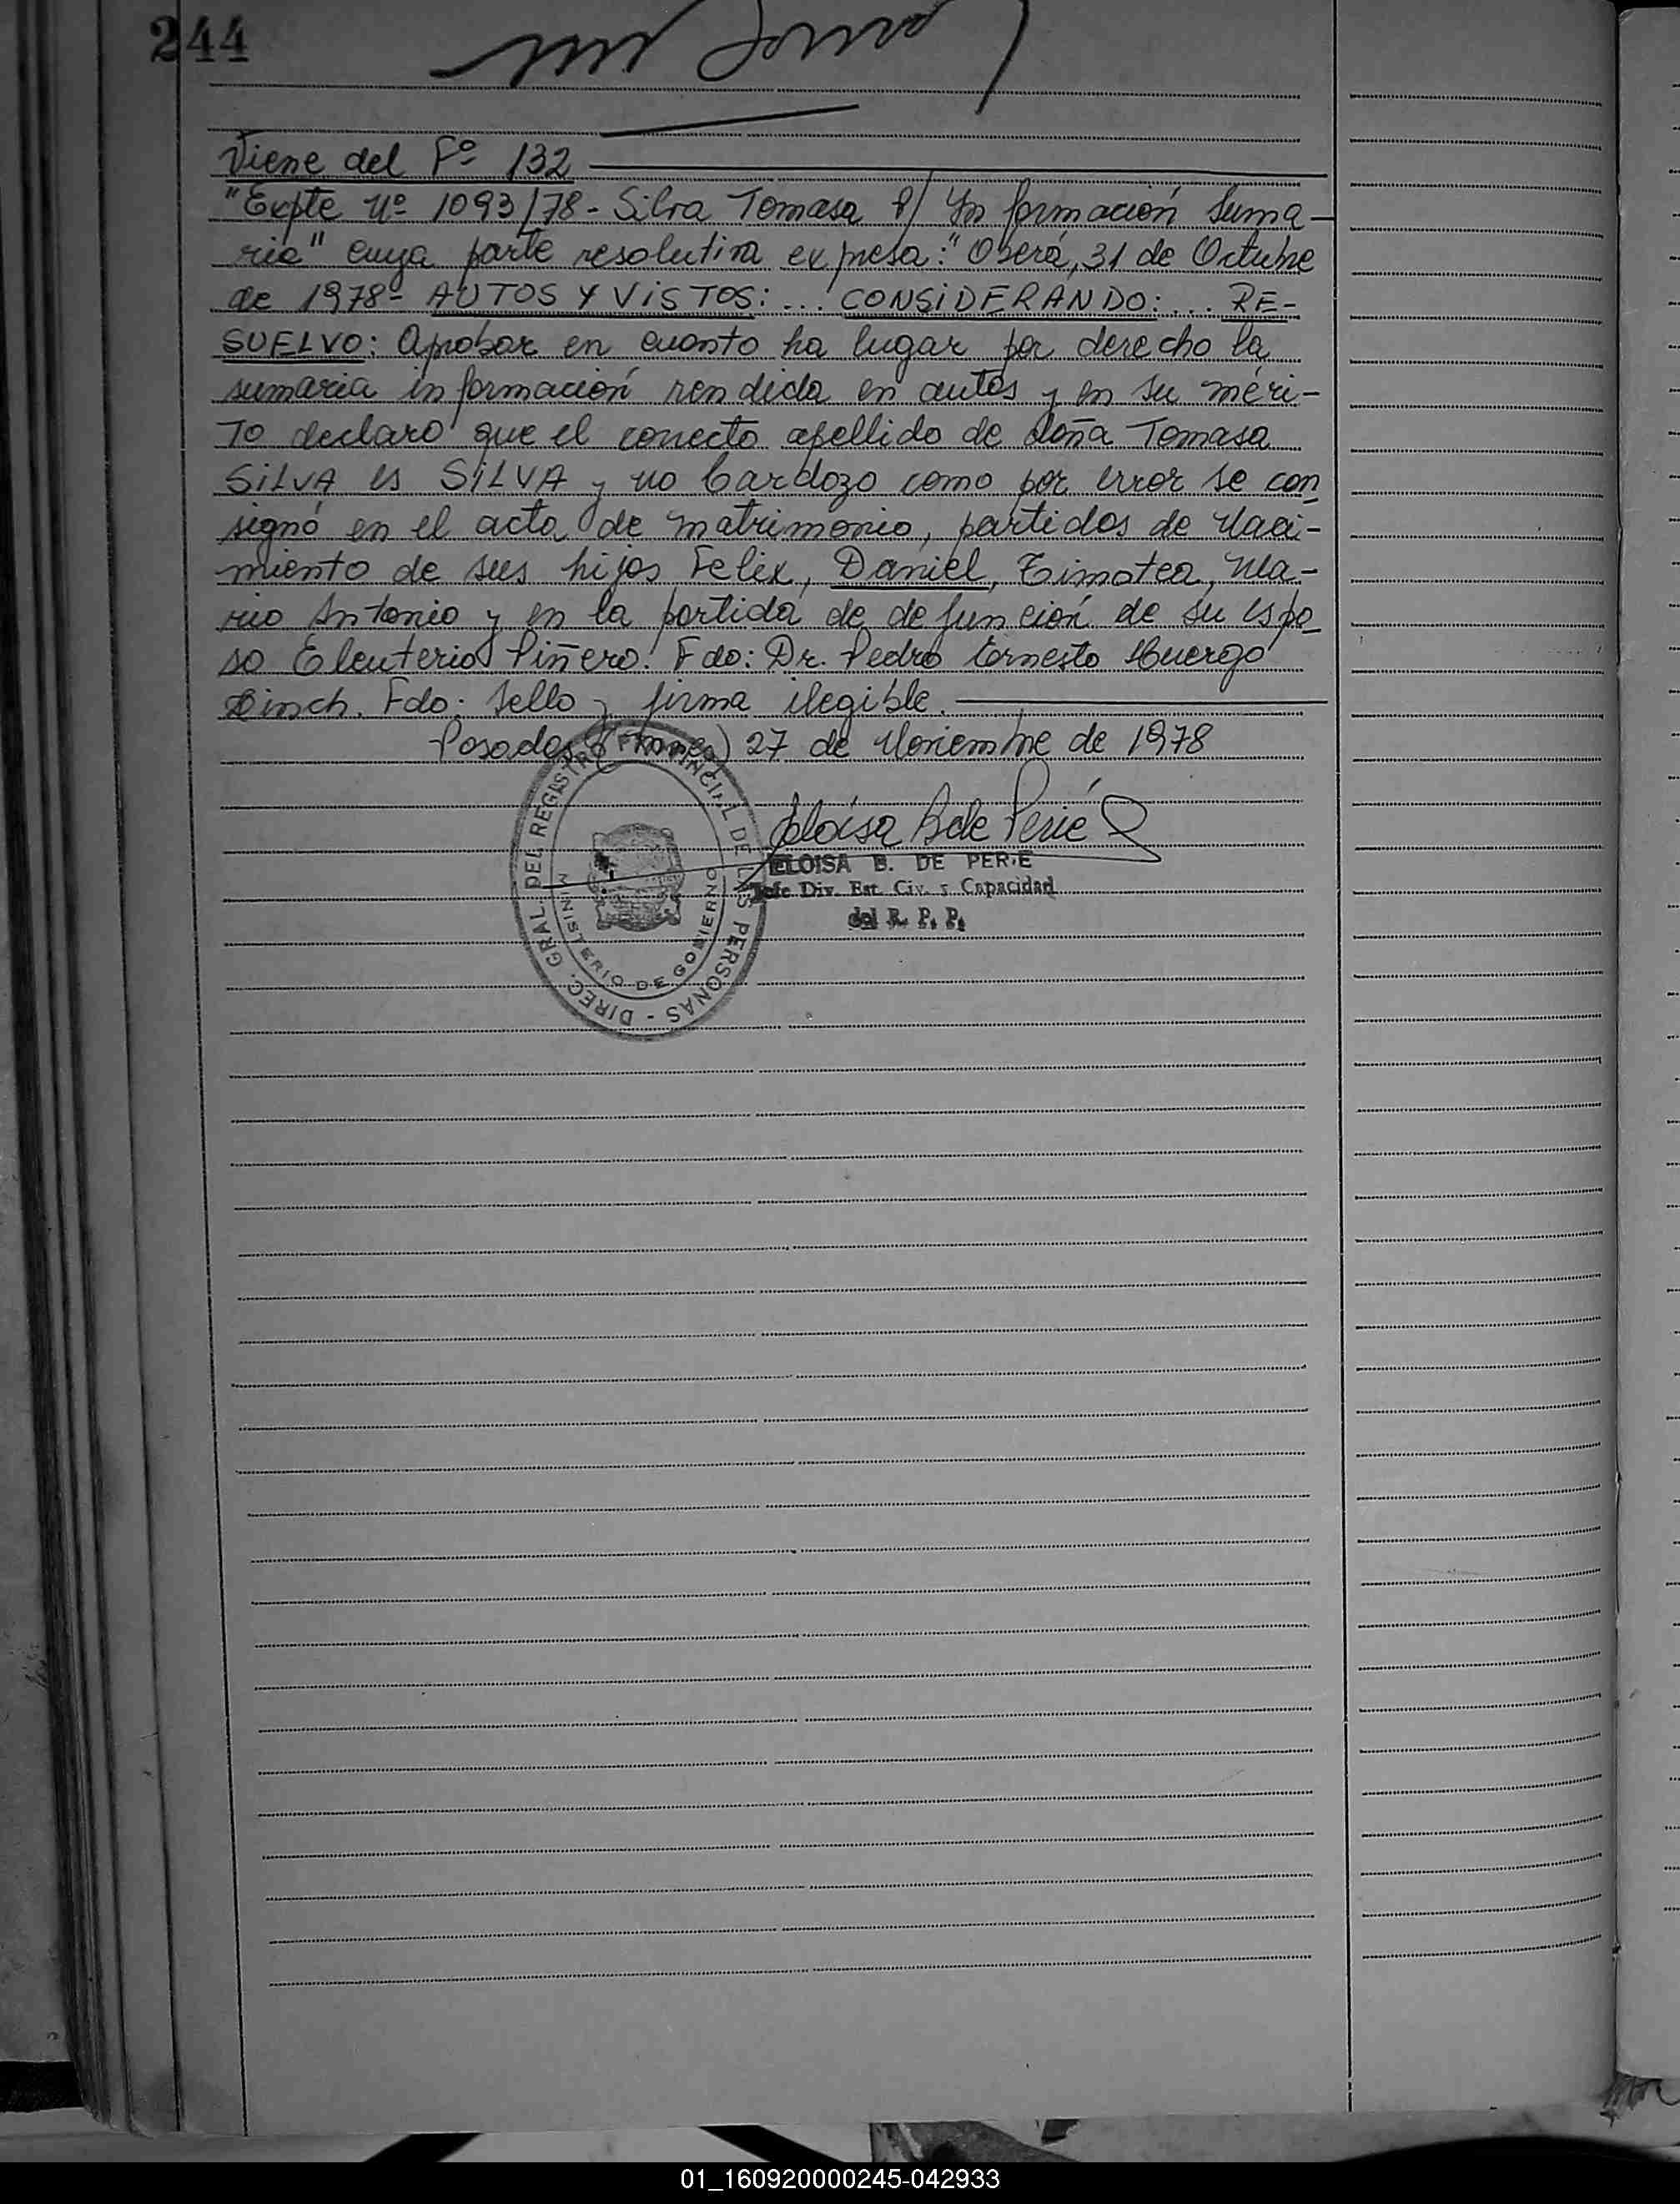 244
Viene del Fº 132
"Expte Nº 1093/78 - Silva Tomasa s/ Información Suma-
ria" cuya parte resolutiva expresa: "Oberá, 31 de Octubre
de 1978- AUTOS Y ViSTOS: ... CONSiDERANDO: ... RE-
SUELVO: Aprobar en cuanto ha lugar por derecho la
sumaria información rendida en autos y en su méri-
to declaro que el correcto apellido de doña Tomasa
SiLVA es SiLVA y no Cardozo como por error se con
signó en el acta de matrimonio, partidas de Naci-
miento de sus hijos Felix, Daniel, Timotea, Ma-
rio Antonio y en la partida de defunción de su espo-
so Eleuterio Piñero. Fdo: Dr. Pedro Ernesto Huergo
Fdo: Sello y firma ilegible.
Posadas, 27 de Noviembre de 1978
Eloisa B de Perié
ELOISA B. DE PERIE
Jefe Div. Est. Civ. y Capacidad
del R. P. P.
DIREC. GRAL. DEL REGISTRO PROVINCIAL DE LAS PERSONAS -
MINISTERIO DE GOBIERNO
01_160920000245-042933